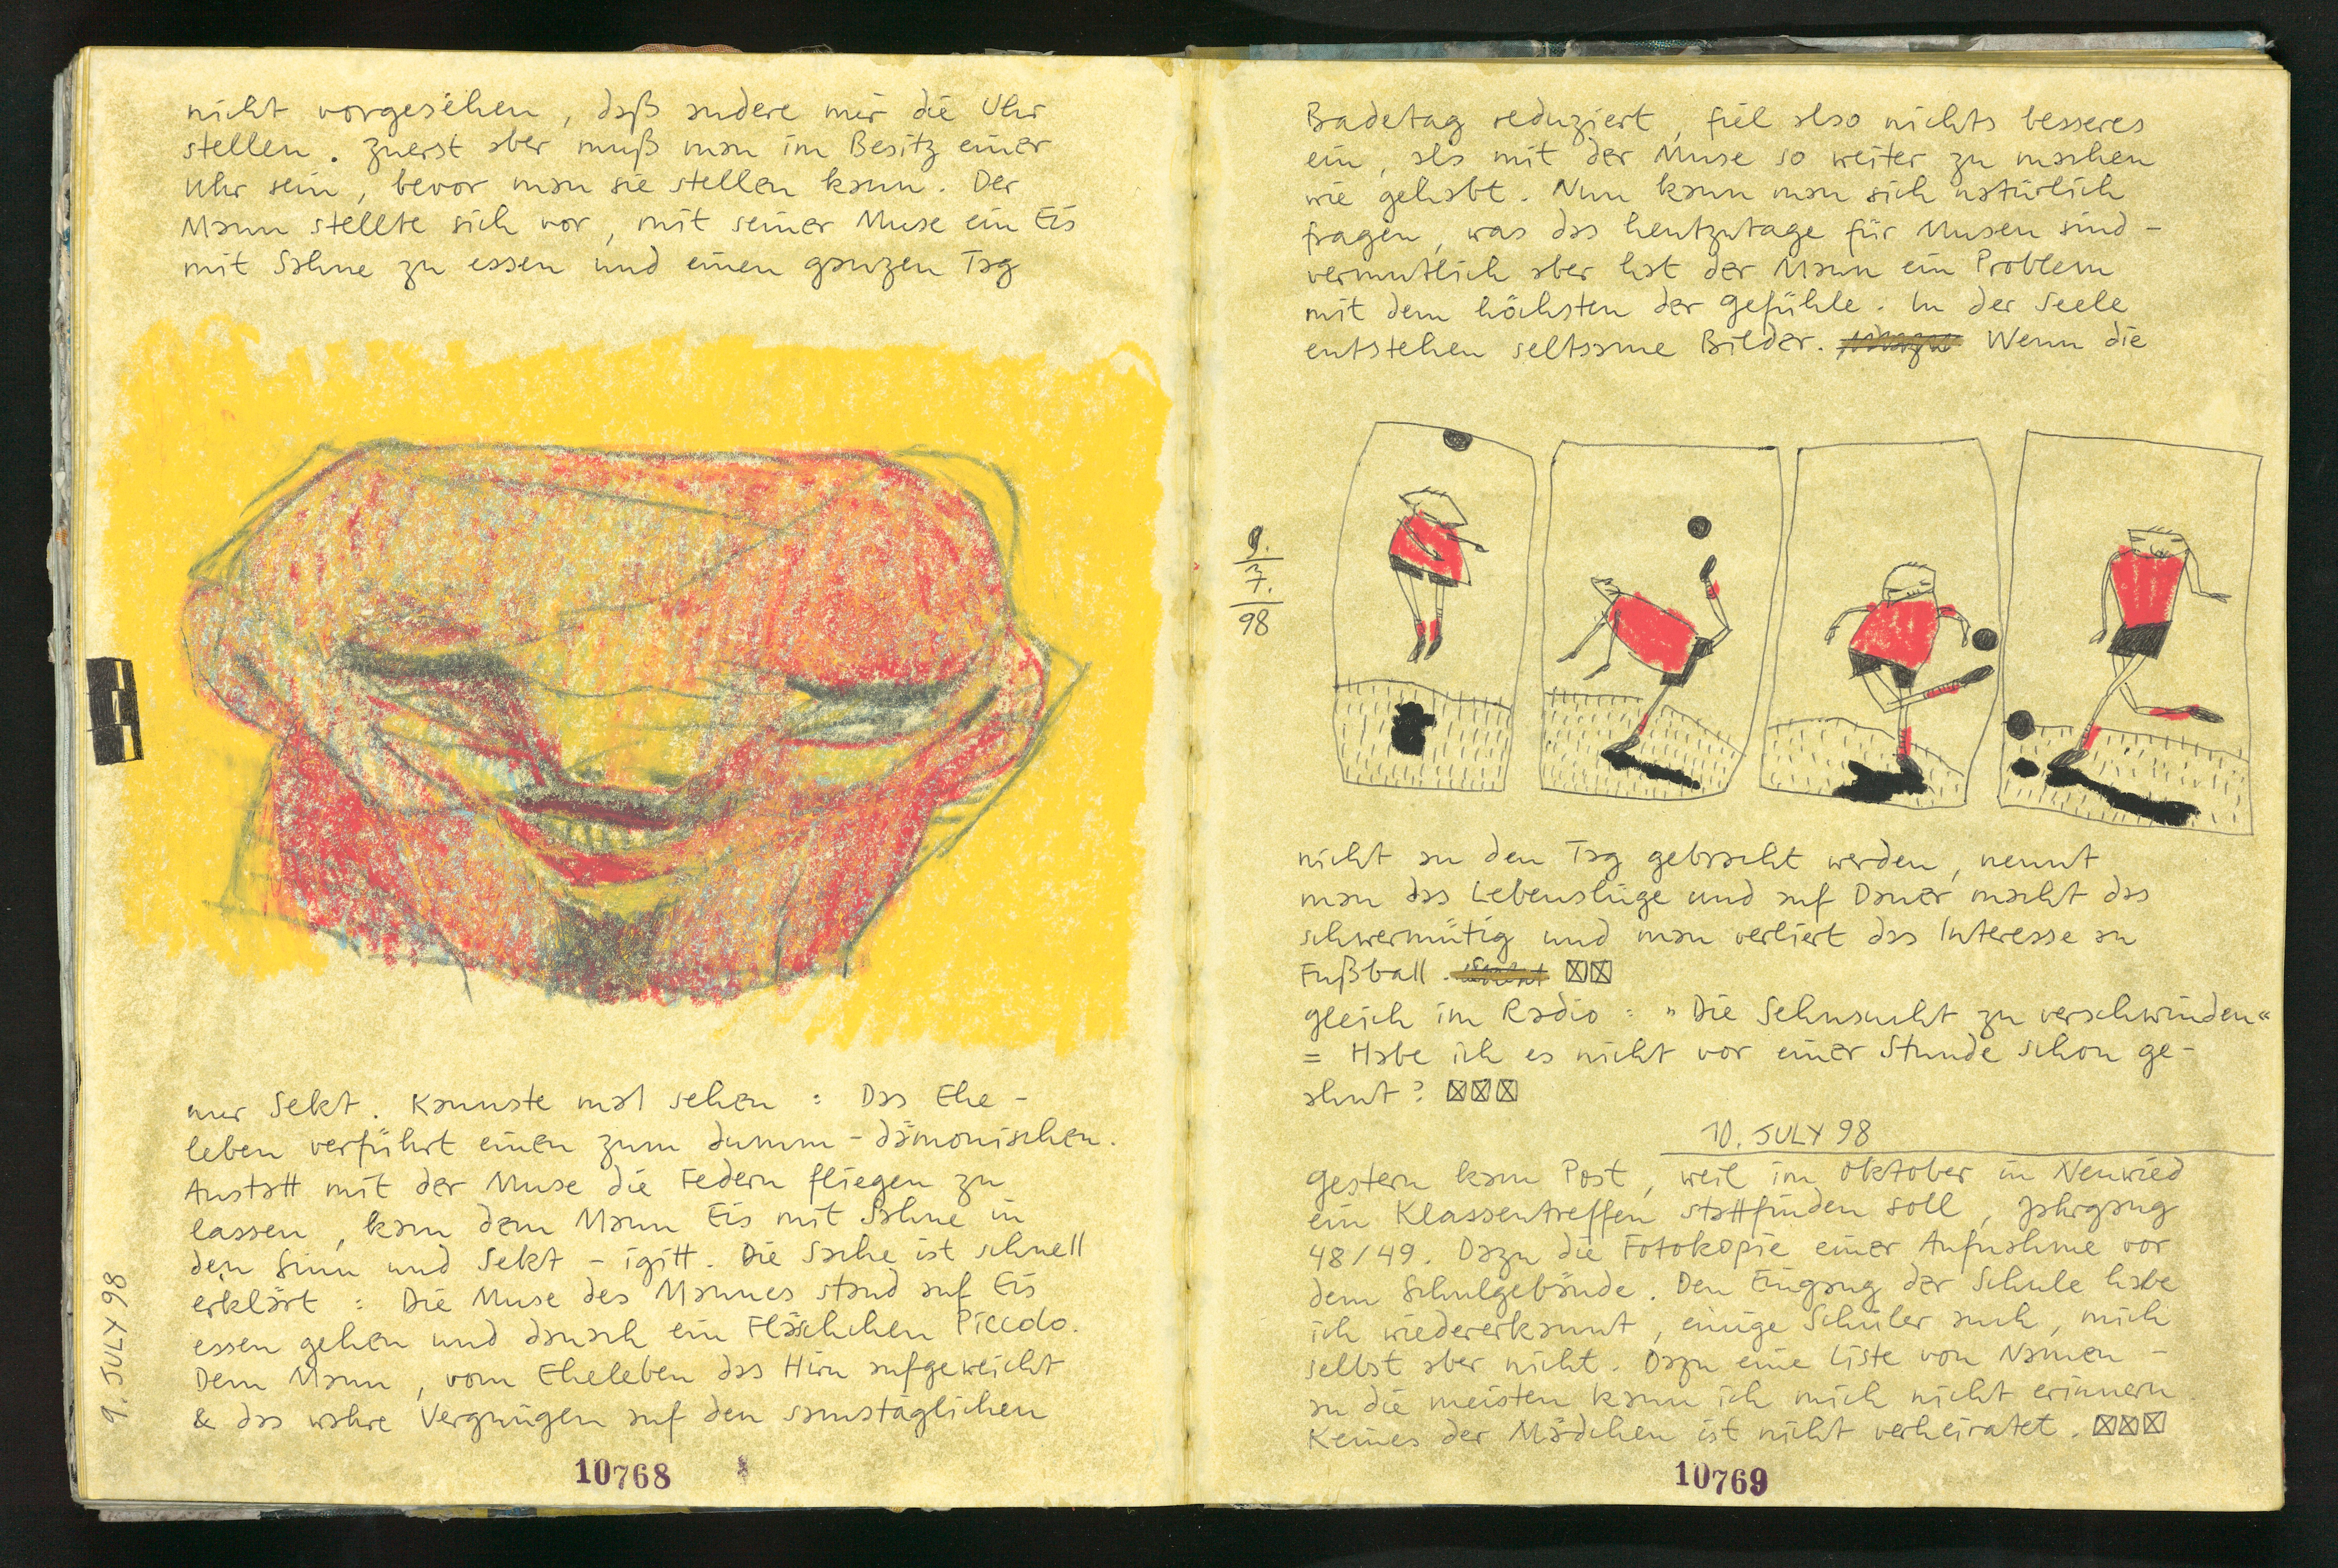 nicht vorgesehen, daß andere mir die Uhr
stellen. Zuerst aber muß man im Besitz einer
Uhr sein, bevor man sie stellen kann. Der
Mann stellte sich vor, mit seiner Muse ein Eis
mit Sahne zu essen und einen ganzen Tag
nur Sekt. Kannste mal sehen: Das Ehe-
leben verführt einen zum dumm-dämonischen.
Anstatt mit der Muse die Federn fliegen zu
lassen, kam dem Mann Eis mit Sahne in
den Sinn und Sekt - igitt. Die Sache ist schnell
erklärt: Die Muse des Mannes stand auf Eis
essen gehen und danach ein Fläschchen Piccolo.
Dem Mann, vom Eheleben das Hirn aufgeweicht
& das wahre Vergnügen auf den samstäglichen
9. JULY 98
10768
Badetag reduziert, fiel also nichts besseres
ein, als mit der Muse so weiter zu machen
wie gehabt. Nun kann man sich natürlich
fragen, was das heutzutage für Musen sind -
vermutlich aber hat der Mann ein Problem
mit dem höchsten der Gefühle. In der Seele
entstehen seltsame Bilder. Wenn die
9.
7.
98
nicht an den Tag gebracht werden, nennt
man das Lebenslüge und auf Dauer macht das
schwermütig und man verliert das Interesse an
Fußball.
gleich im Radio: „Die Sehnsucht zu verschwinden“
= Habe ich es nicht vor einer Stunde schon ge-
ahnt?
10. JULY 98
Gestern kam Post, weil im Oktober in Neuwied
ein Klassentreffen stattfinden soll, Jahrgang
48/49. Dazu die Fotokopie einer Aufnahme vor
dem Schulgebäude. Den Eingang der Schule habe
ich wiedererkannt, einige Schüler auch, mich
selbst aber nicht. Dazu eine Liste von Namen -
an die meisten kann ich mich nicht erinnern
Keines der Mädchen ist nicht verheiratet.
10769